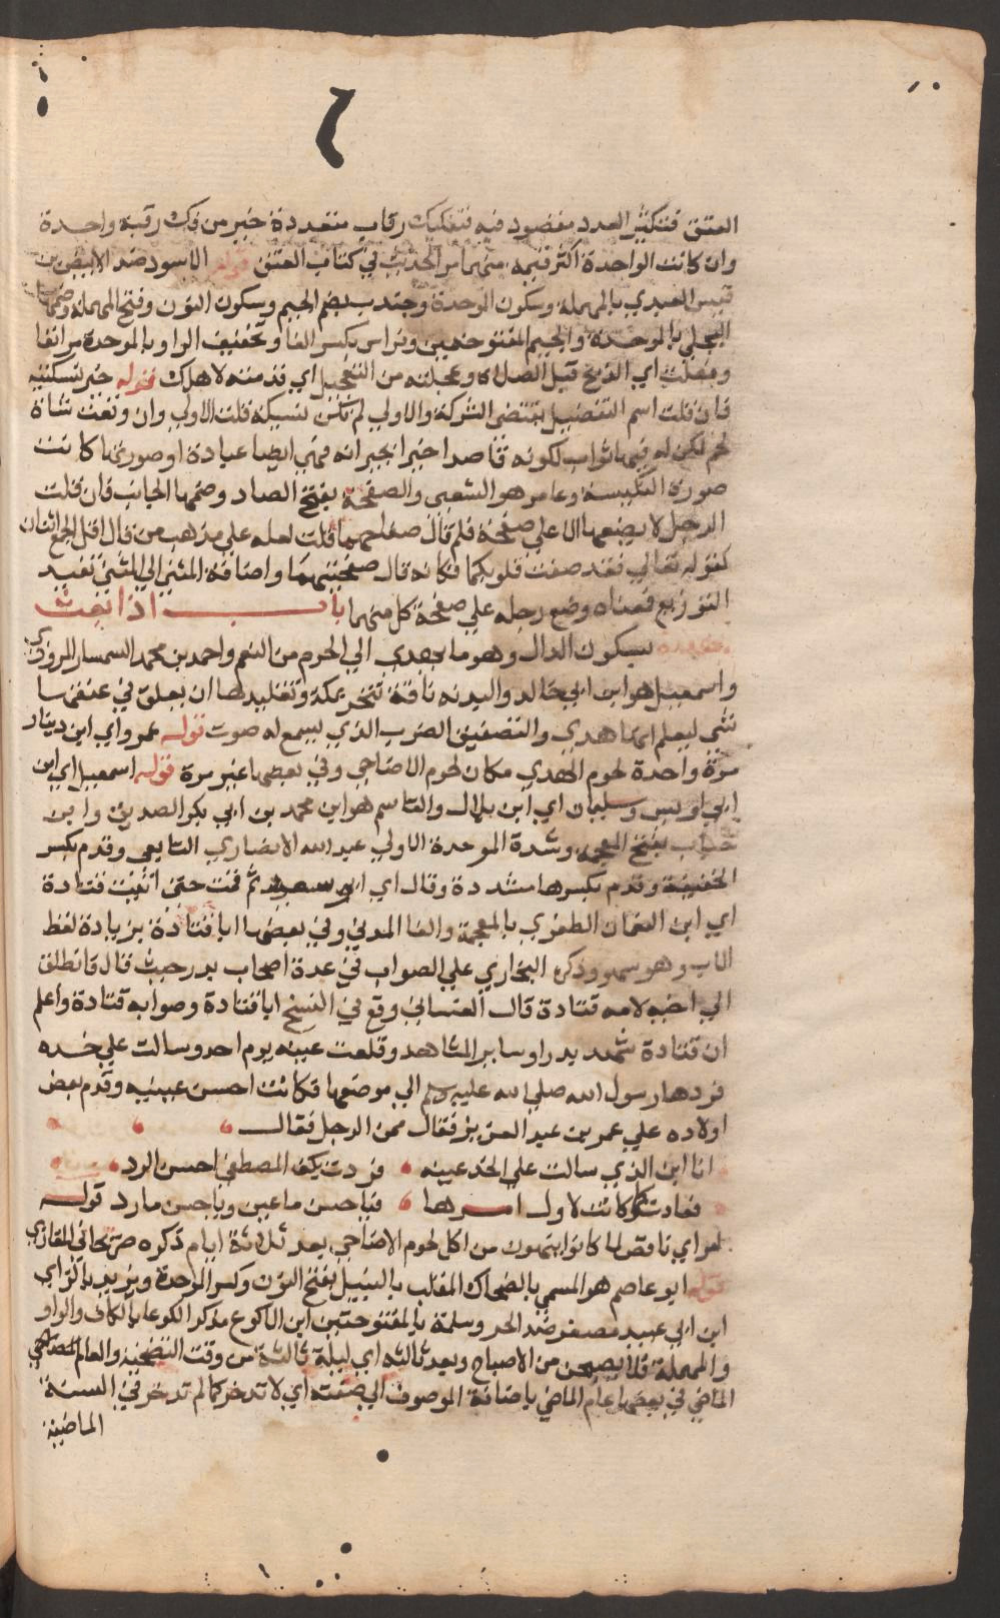 العتق فتكثير العدد مقصود فيه فتفكيك رقاب متعددة خير من فك رقبة واحدة
وان كانت الواحدة اكثر قيمة منهما مر الحديث في كتاب العتق قوله الاسود ضد الابيض بن
قيس العبدي بالمهملة وسكون الموحدة وجندب بضم الجيم وسكون النون وفتح المهملة وضمها
البجلي بالموحدة والجيم المفتوحتين وفراس بكسر الفا وتخفيف الراو بالموحدة مر انفا
وفعلت اي الذبح قبل الصلاة وعجلته من التعجيل اي قدمته لاهلك قوله خير نسكتيه
فان قلت اسم التفضيل يقتضي الشركة والاولي لم تكن نسيكة قلت الاولي وان وقعت شاة
لحم لكن له فيها ثواب لكونه قاصدا جبر الجيرانه فهي ايضا عبادة او صورتها كانت
صورة النسيكة وعامر هو الشعبي والصفحة بفتح الصاد وضمها الجانب فان قلت
الرجل لا يضعها الا علي صفحة فلم قال صفاحهما قلت لعله علي مذهب من قال اقل الجمع اثنان
كقوله تعالي فقد صغت قلوبكما فكانه قال صفحتيهما واضافة المثني الي المثني تفيد
التوزيع فمعناه وضع رجله علي صفحة كل منهما باب اذا بعث
بهديه بسكون الدال وهو ما يهدي الي الحرم من النعم واحمد بن محمد السمسار المروزي
واسمعيل هو ابن ابي خالد والبدنه ناقة تنحر بمكة وتقليدها ان يعلق في عنقها
شي ليعلم انها هدي والتصفيق الضرب الذي يسمع له صوت قوله عمرو اي ابن دينار
مرة واحدة لحوم الهدي مكان لحوم الاضاحي وفي بعضها غير مرة قوله اسمعيل اي ابن
ابي اويس وسليمان اي ابن بلال والقاسم هو ابن محمد بن ابي بكر الصديق وابن
خباب بفتح المعجمة وشدة الموحدة الاولي عبد الله الانصاري التابعي وقدم بكسر
الخفيفة وقدم بكسرها مشددة وقال اي ابو سعيد ثم قمت حتي اتيت قتادة
اي ابن النعمان الظفري بالمعجمة والفا المدني وفي بعضها ابا قتادة بزيادة لفظ
الاب وهو سهو وذكره البخاري علي الصواب في عدة اصحاب بدر حيث قال فانطلق
الي اخيه لامه قتادة قال الغساني وقع في النسخ ابا قتادة وصوابه قتادة واعلم
ان قتادة شهد بدرا وساير المشاهد وقلعت عينه يوم احد وسالت علي خده
فردها رسول الله صلي الله عليه وسلم الي موضعها فكانت احسن عينيه وقدم بعض
اولاده علي عمر بن عبد العزيز فقال ممن الرجل فقال
انا ابن الذي سالت علي الخد عينه فردت بكف المصطفي احسن الرد
فعادت كما كانت لاول امرها فياحسن ما عين وياحسن ما رد قوله
امر اي ناقض لما كانوا ينهون من اكل لحوم الاضاحي بعد ثلاثة ايام ذكره صريحا في المغازي
قوله ابو عاصم هو المسمي بالضحاك الملقب بالنبيل بفتح النون وكسر الموحدة ويزيد بالزاي
ابن ابي عبيد مصغر ضد الحر وسلمة بالمفتوحتين ابن الاكوع مذكر الكوعا بالكاف والواو
والمهملة فلا يصبحن من الاصباح وبعد ثالثه اي ليلة ثالثة من وقت التضحية والعام
الماضي في بعضها عام الماضي باضافة الموصوف الي صفته اي لا تدخر كما لم تدخر في السنة
الماضية